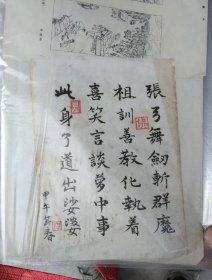 張弓舞劍斬群魔
祖訓善教化執着
喜笑言談夢中事
此身了道出娑婆
甲午年春